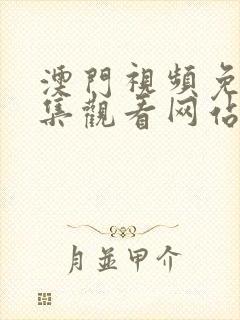 澳門視頻免
集觀看网佔
月並甲介